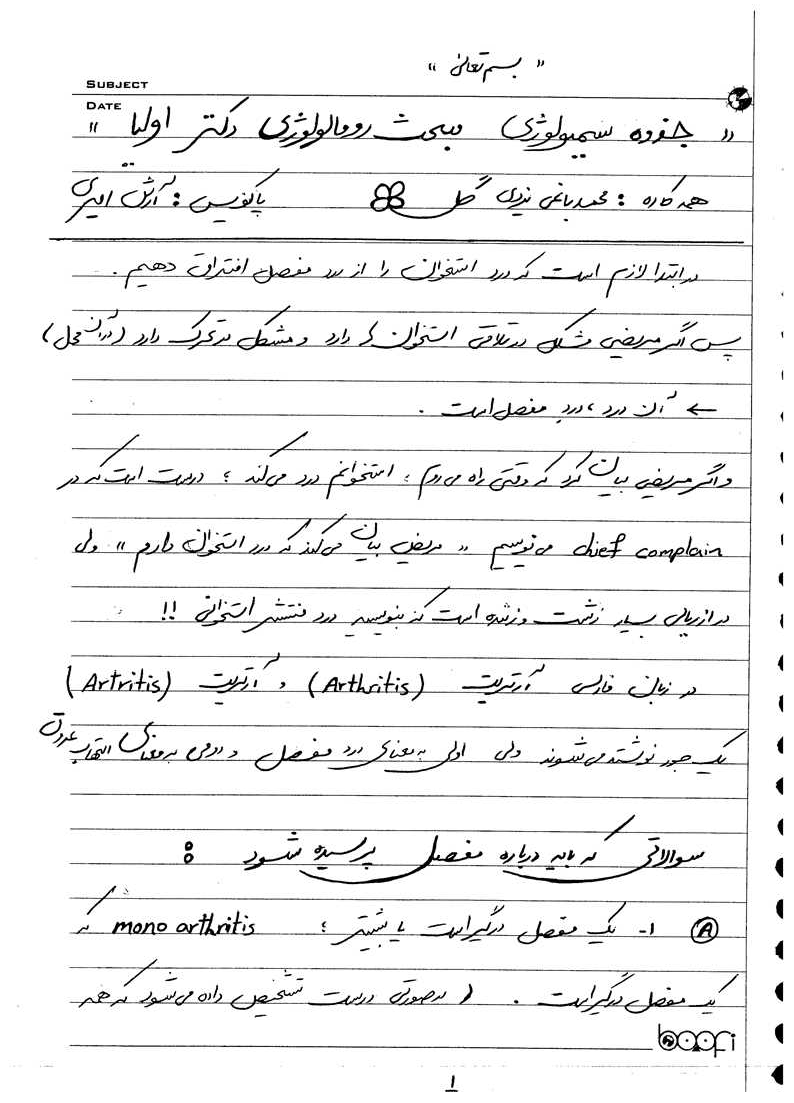 « بسم تعالی »
SUBJECT
DATE
« جزوه سمیولوژی مبحث روماتولوژی دکتر اولیا »
همه کاره : محمد باغی یزدی گل پاکنویس : آرش امیری
در ابتدا لازم است که درد استخوان را از درد مفصل افتراق دهیم .
پس اگر مریضی مشکل در تلاقی استخوان ها دارد و مشکل در تحرک دارد (در آن محل)
← آن درد ، درد مفصل است .
و اگر مریضی بیان کرد که وقتی راه می روم ؛ استخوانم درد می کند ؛ درست است که در
chief complain می نویسیم « مریض بیان می کند که درد استخوان دارم » ولی
در ارزیابی بسیار زشت و زننده است که بنویسید درد منتشر استخوانی !!
در زبان فارسی آرتریت (Arthritis) و آرتریت (Artritis)
یک جور نوشته می شوند ولی اولی به معنای درد مفصل و دومی به معنای التهاب عروق
سوالاتی که باید درباره مفصل پرسیده شود :
Ⓐ ۱- یک مفصل درگیر است یا بیشتر ؛ mono arthritis که
یک مفصل درگیر است . ( در صورتی درست تشخیص داده می شود که همه
boofi
۱